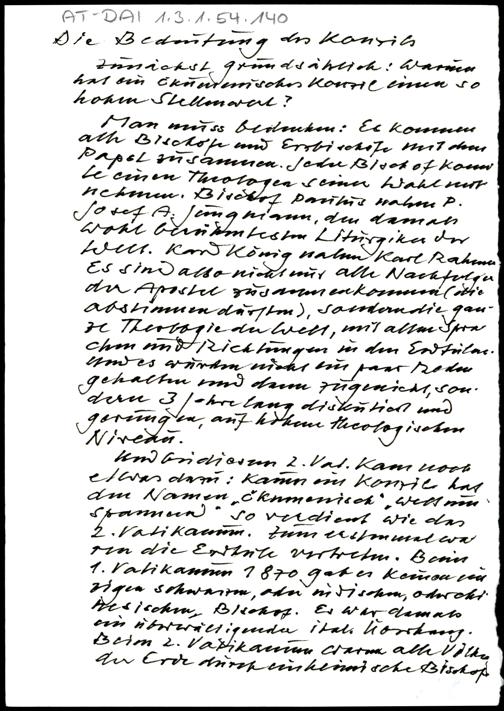 AT-DAI 1.3.1.54.140
Die Bedeutung des Konzils
Zunächst grundsätzlich: Warum
hat ein Ökumenisches Konzil einen so
hohen Stellenwert?
Man muss bedenken: Es kommen
alle Bischöfe und Erzbischöfe mit dem
Papst zusammen. Jeder Bischof konn
te einen Theologen seiner Wahl mit
nehmen. Bischof Paulus nahm P.
Josef A. Jungmann, den damals
wohl berühmtesten Liturgiker der
Welt. Kard König nahm Karl Rahner
Es sind also nicht nur alle Nachfolger
der Apostel zusammenkommen (die
abstimmen dürften), sondern die gan
ze Theologie der Welt, mit allen Spra
chen und Richtungen in den Erdteilen.
Und es wurden nicht ein paar Reden
gehalten und dann zugenickt, son-
dern 3 Jahre lang diskutiert und
gerungen, auf hohem theologischen
Niveau.
Und bei diesem 2. Vat. kam noch
etwas dazu: Kaum ein Konzil hat
den Namen „Ökumenisch", „weltum-
spannend" so verdient wie das
2. Vatikanum. Zum erstenmal wa
ren die Erdteile vertreten. Beim
1. Vatikanum 1870 gab es keinen ein
zigen schwarzen, oder indischen, oder chi
nesischen, Bischof. Es war damals
ein überwältigender ital. Überhang.
Beim 2. Vatikanum waren alle Völker
der Erde durch einheimische Bischöfe